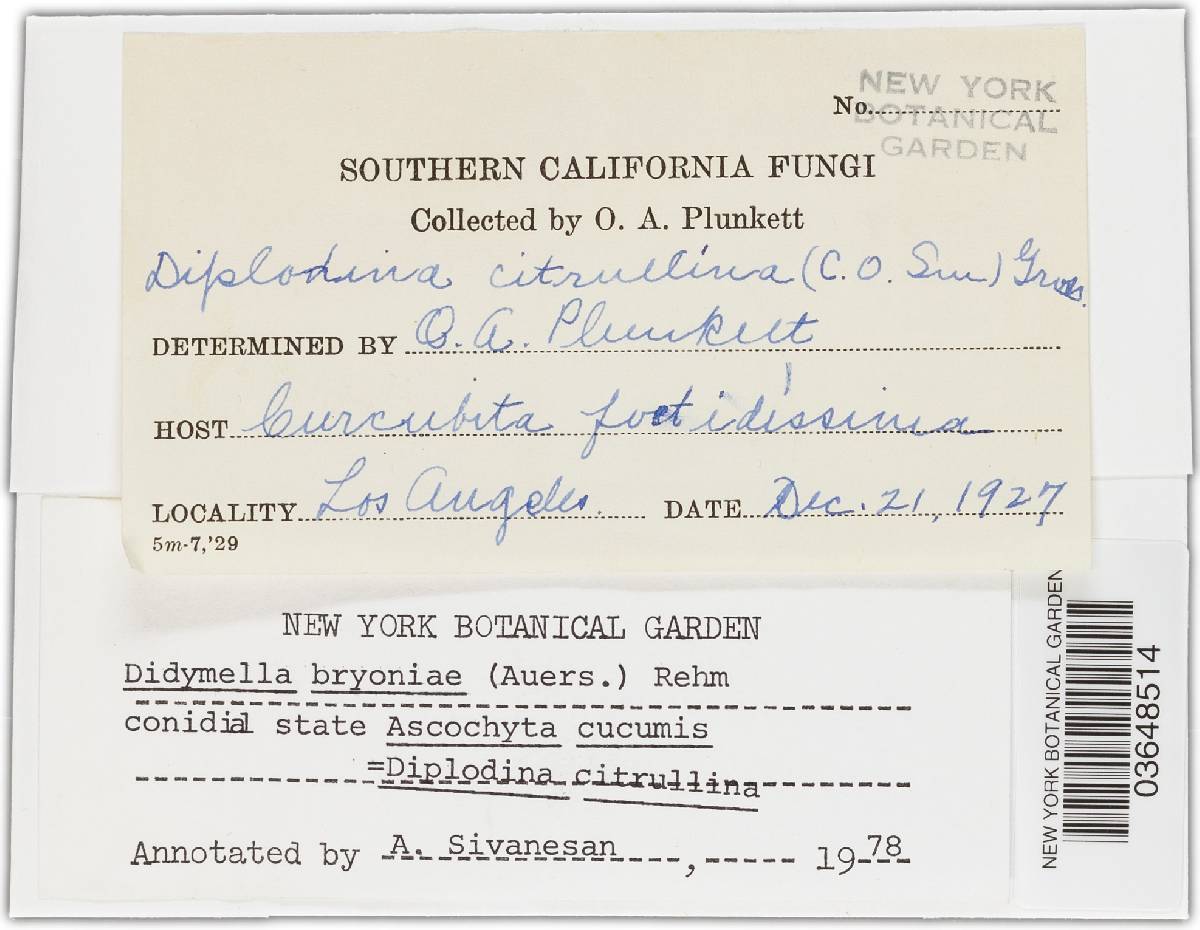 NEW YORK
BOTANICAL
GARDEN
No.
SOUTHERN CALIFORNIA FUNGI
Collected by O. A. Plunkett
Diplodina citrullina (C. O. Sm) Gross.
DETERMINED BY O. A. Plunkett
HOST Curcubita foetidissima
LOCALITY Los Angeles. DATE Dec. 21, 1927
5m-7,'29
NEW YORK BOTANICAL GARDEN
Didymella bryoniae (Auers.) Rehm
conidial state Ascochyta cucumis
=Diplodina citrullina
Annotated by A. Sivanesan, 1978
NEW YORK BOTANICAL GARDEN
03648514